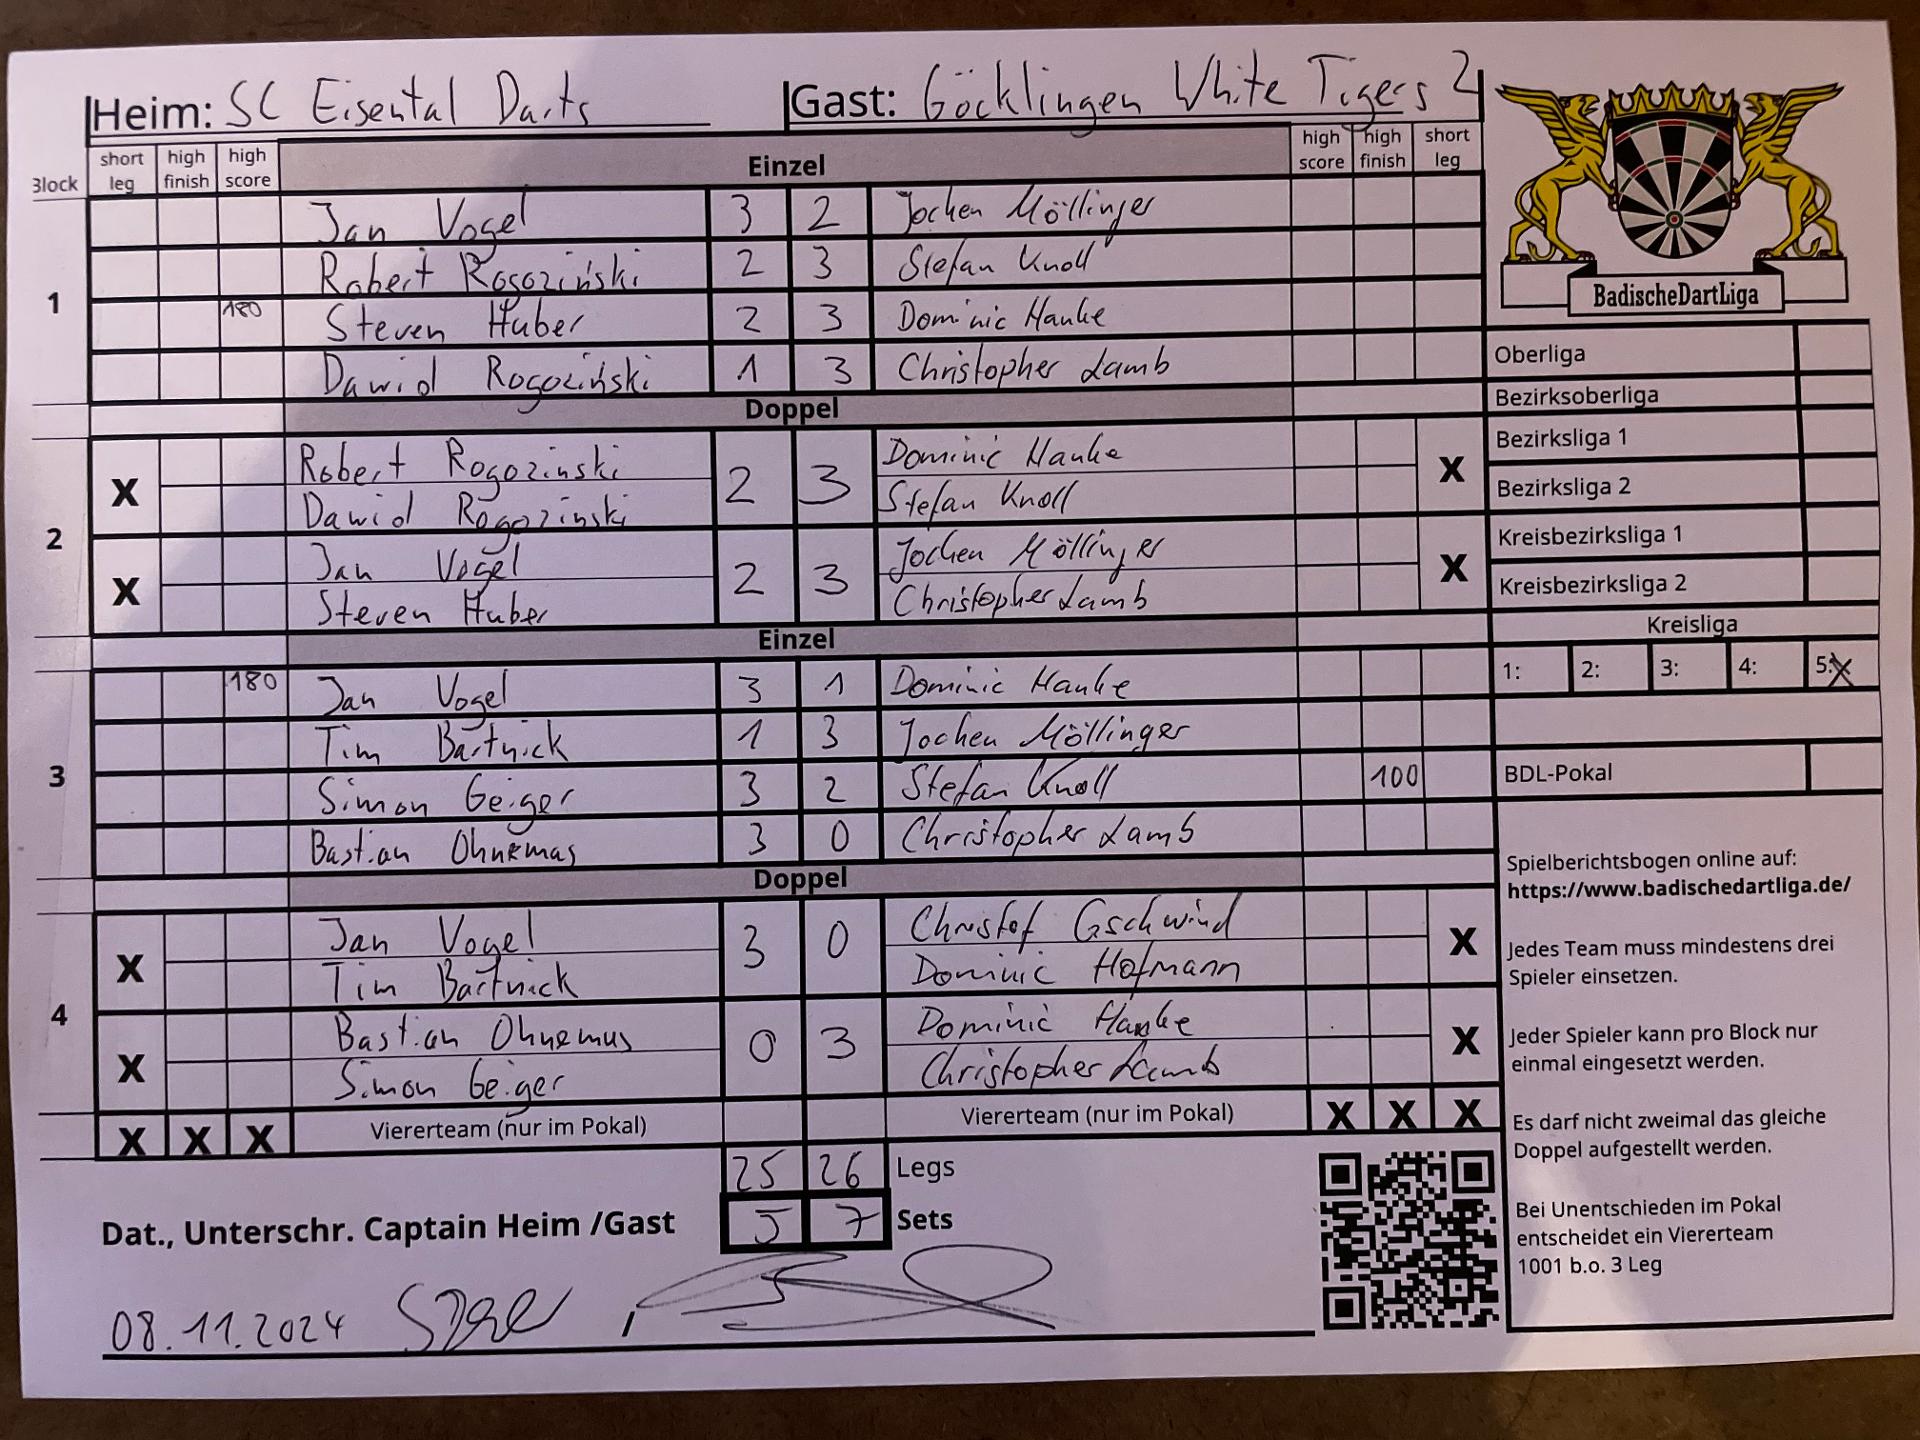 Heim: SC Eisental Darts Gast: Göcklingen White Tigers 2
Block short leg high finish high score Einzel high score high finish short leg
1
Jan Vogel 3 2 Jochen Möllinger
Robert Rogoziński 2 3 Stefan Knoll
180 Steven Huber 2 3 Dominic Hanke
Dawid Rogoziński 1 3 Christopher Lamb
Doppel
2
X Robert Rogozinski 2 3 Dominic Hanke X
Dawid Rogozinski Stefan Knoll
X Jan Vogel 2 3 Jochen Möllinger X
Steven Huber Christopher Lamb
Einzel
3
180 Jan Vogel 3 1 Dominic Hanke
Tim Bartnick 1 3 Jochen Möllinger
Simon Geiger 3 2 Stefan Knoll 100
Bastian Ohnemus 3 0 Christopher Lamb
Doppel
4
X Jan Vogel 3 0 Christof Gschwind X
Tim Bartnick Dominic Hofmann
X Bastian Ohnemus 0 3 Dominic Hanke X
Simon Geiger Christopher Lamb
X X X Viererteam (nur im Pokal) Viererteam (nur im Pokal) X X X
25 26 Legs
Dat., Unterschr. Captain Heim /Gast 5 7 Sets
08.11.2024
BadischeDartLiga
Oberliga
Bezirksoberliga
Bezirksliga 1
Bezirksliga 2
Kreisbezirksliga 1
Kreisbezirksliga 2
Kreisliga
1: 2: 3: 4: 5: X
BDL-Pokal
Spielberichtsbogen online auf:
https://www.badischedartliga.de/
Jedes Team muss mindestens drei
Spieler einsetzen.
Jeder Spieler kann pro Block nur
einmal eingesetzt werden.
Es darf nicht zweimal das gleiche
Doppel aufgestellt werden.
Bei Unentschieden im Pokal
entscheidet ein Viererteam
1001 b.o. 3 Leg